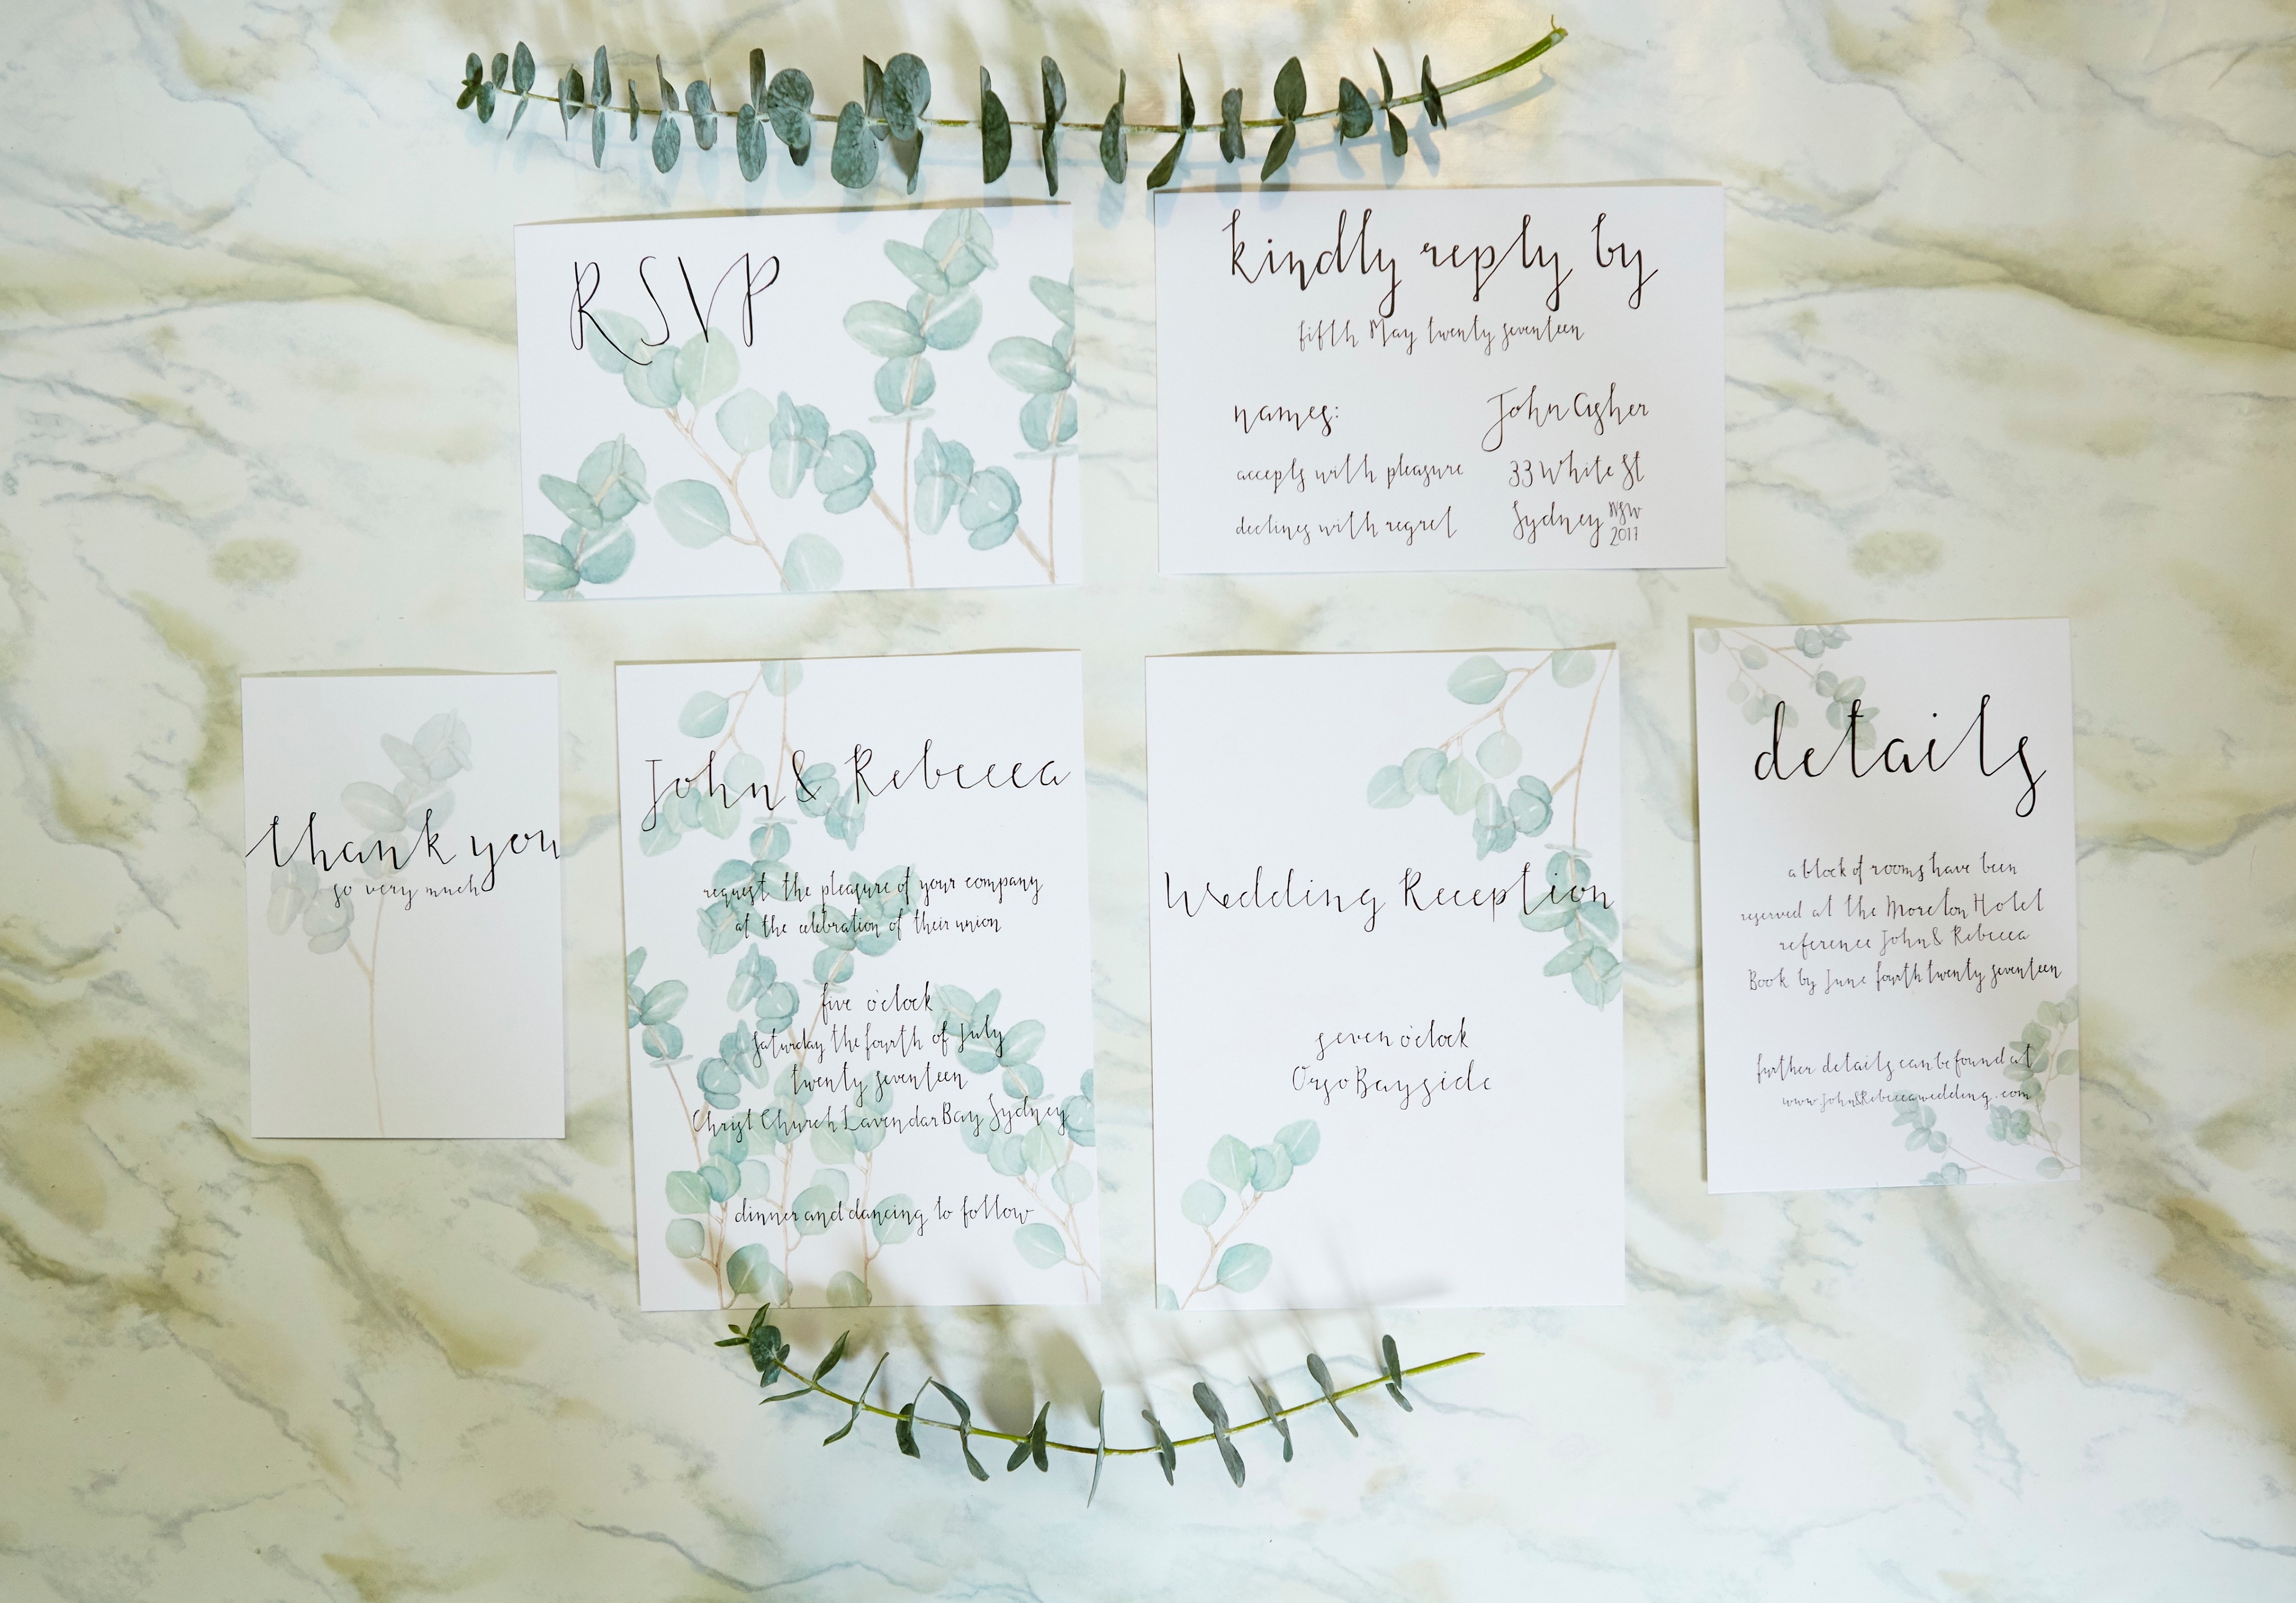 RSVP
kindly reply by
fifth May twenty seventeen
names:
John Asher
accepts with pleasure
33 White St
declines with regret
Sydney NSW
2017
thank you
so very much
John & Rebecca
request the pleasure of your company
at the celebration of their union
five o'clock
saturday the fourth of July
twenty seventeen
Christ Church Lavendar Bay Sydney
dinner and dancing to follow
Wedding Reception
seven o'clock
Orso Bayside
details
a block of rooms have been
reserved at the Moreton Hotel
reference John & Rebecca
Book by June fourth twenty seventeen
further details can be found at
www.John&Rebeccawedding.com